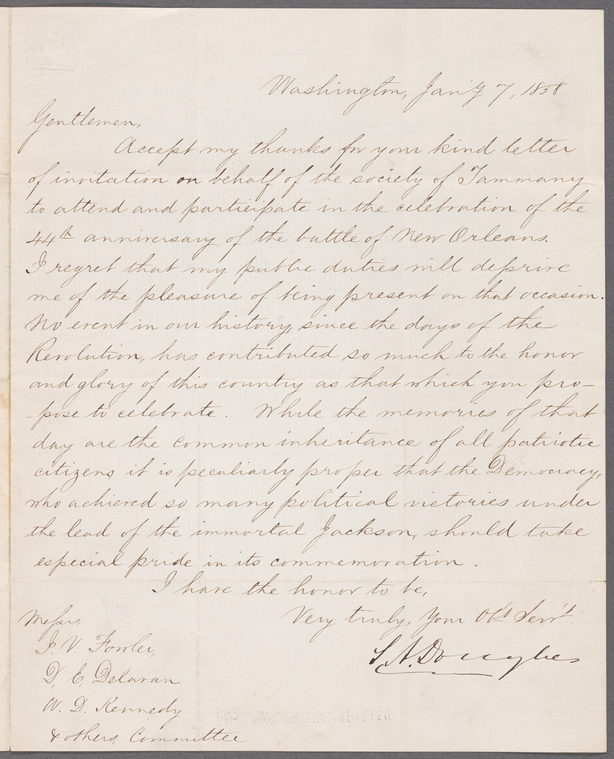 Washington, Jan'y 7, 1858
Gentlemen,
Accept my thanks for your kind letter
of invitation on behalf of the society of Tammany
to attend and participate in the celebration of the
44th anniversary of the battle of New Orleans.
I regret that my public duties will deprive
me of the pleasure of being present on that occasion.
No event in our history since the days of the
Revolution, has contributed so much to the honor
and glory of this country as that which you pro-
-pose to celebrate. While the memories of that
day are the common inheritance of all patriotic
citizens it is peculiarly proper that the Democracy,
who achieved so many political victories under
the lead of the immortal Jackson, should take
especial pride in its commemoration.
I have the honor to be,
Very truly, Your Obt Servt
S. A. Douglas
Messrs
I. V Fowler,
D. E. Delavan
W. D. Kennedy
& others, Committee